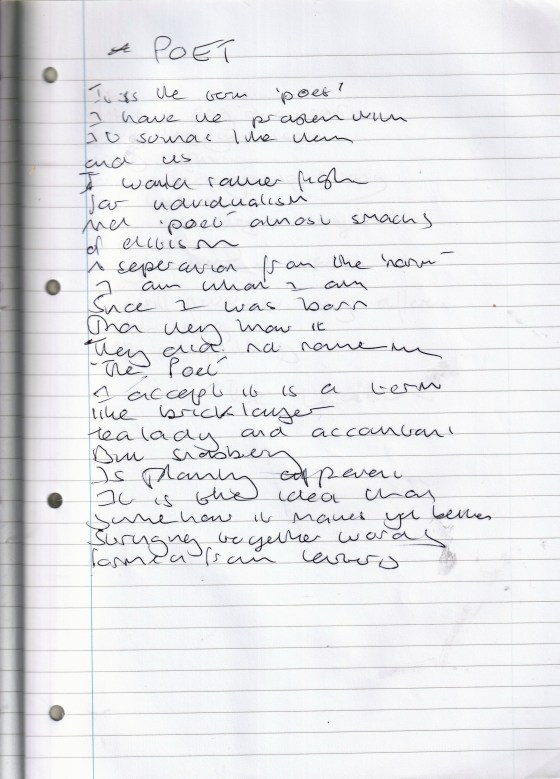 POET
It is the term 'poet'
I have the problem with
It sounds like them
and us
I would rather fight
for individualism
And 'poet' almost smacks
of elitism
A seperation from the 'norm'
I am what I am
Since I was born
They did not name me
'The Poet'
I accept it is a term
like bricklayer
tealady and accountant
But snobbery
Is plainly apparent
It is the idea that
somehow it makes you better
Stringing together words
formed from letters